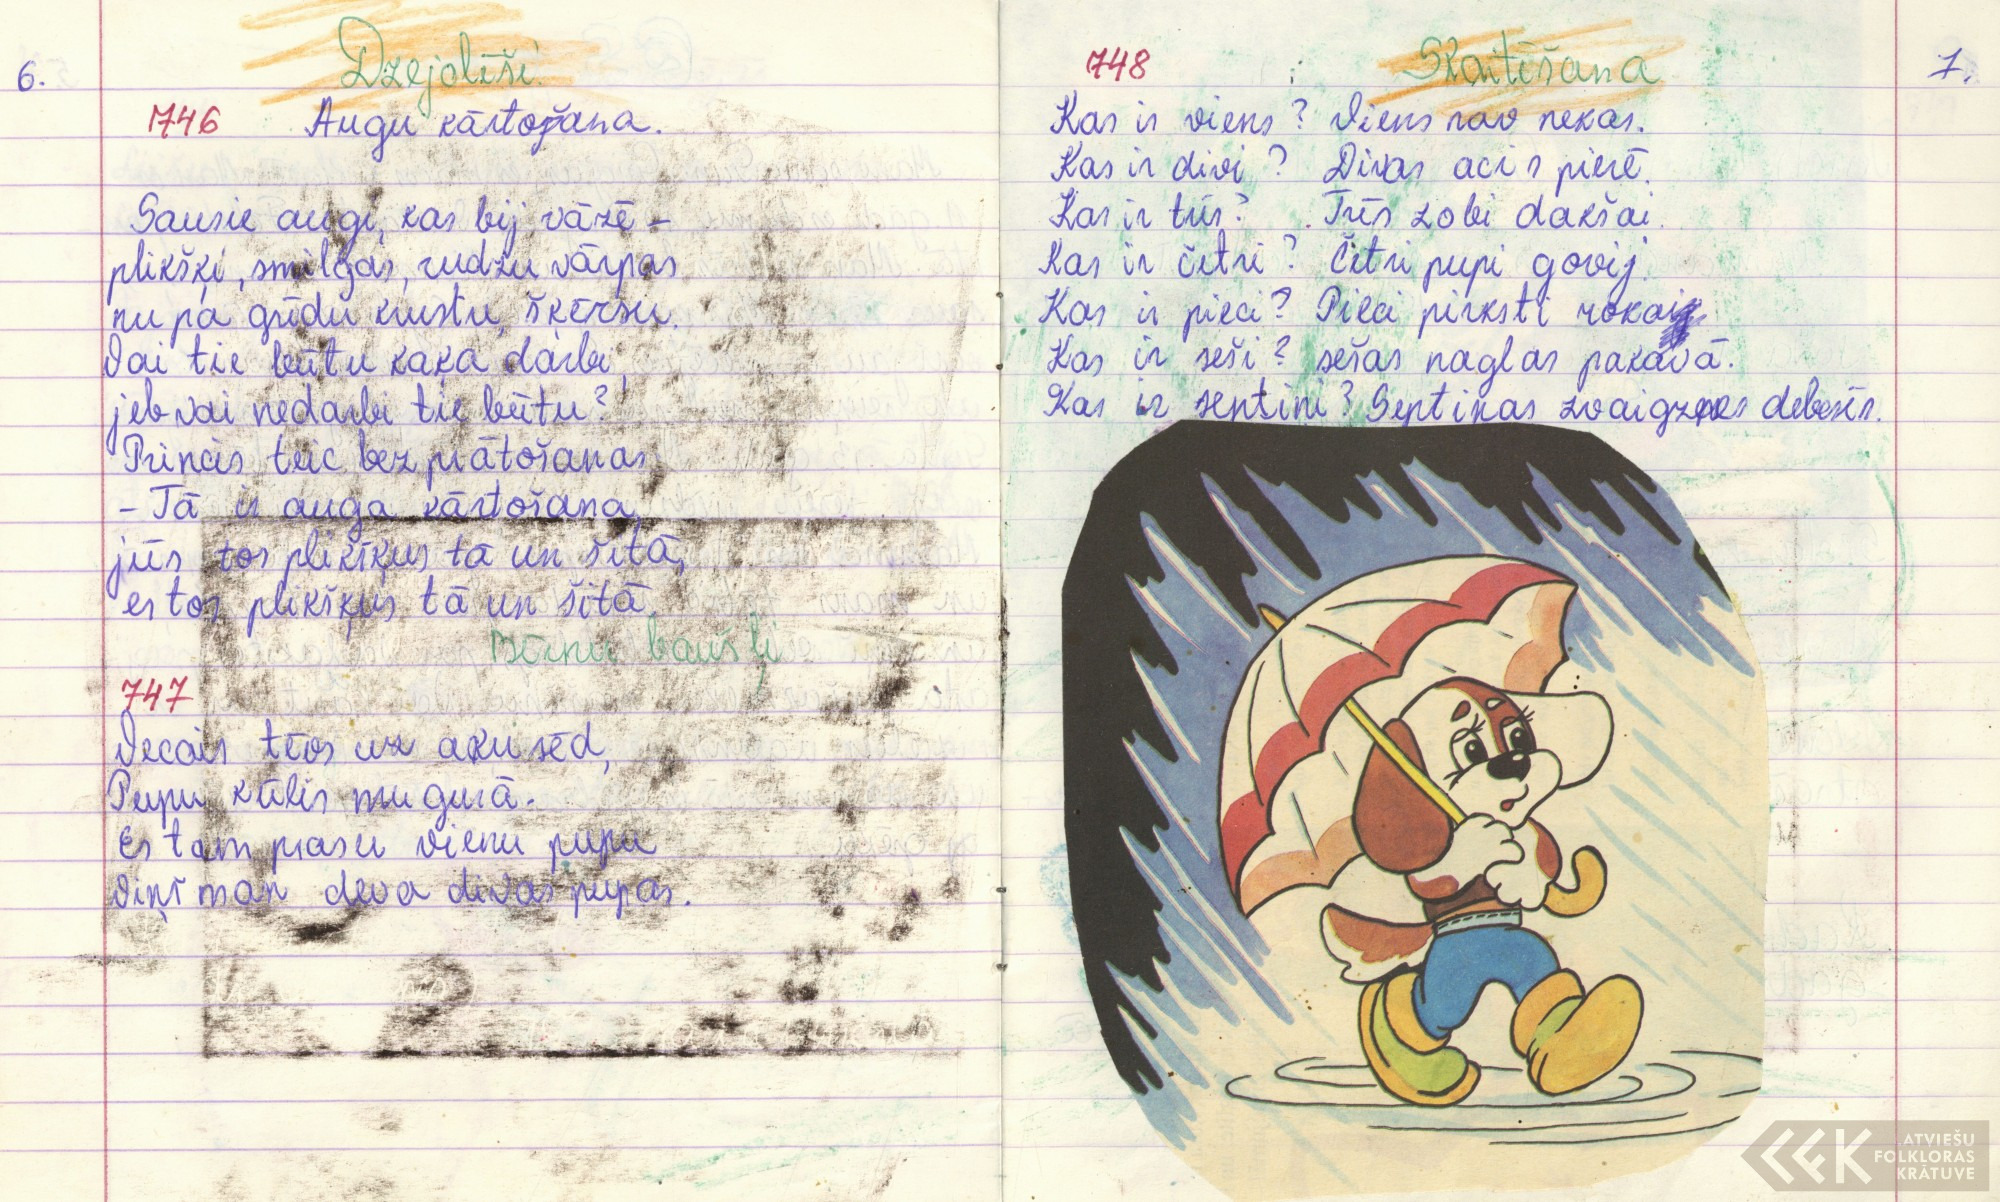 6.
Dzejolīši.
746
Augu kārtošana.
Sausie augi, kas bij vāzē -
plikšķi, smilgas, rudzu vārpas
nu pa grīdu krustu, šķērsu.
Vai tie būtu kaķa darbi,
jeb vai nedarbi tie būtu?
Princis teic bez prātošanas
- Tā ir auga kārtošana,
jūs tos plikšķus tā un šitā,
es tos plikšķus tā un šitā.
Bērnu baušļi
747
Vecais tēvs uz aku sēd,
Pupu kūlis mugurā.
Es tam prasu vienu pupu
Viņš man deva divas pupas.
748
Skaitīšana
7.
Kas ir viens? Viens nav nekas.
Kas ir divi? Divas acis pierē.
Kas ir trīs? Trīs zobi dakšai.
Kas ir četri? Četri pupi govij.
Kas ir pieci? Pieci pirksti rokai
Kas ir seši? sešas naglas pakavā.
Kas ir septiņi? Septiņas zvaigznes debesīs.
LATVIEŠU
FOLKLORAS
KRĀTUVE